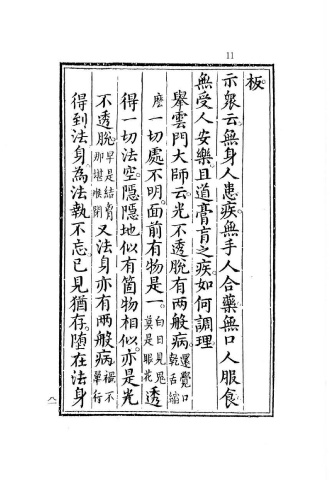 11
板。
示衆云。無身人患疾。無手人合藥。無口人服食。
無受人安樂。且道膏肓之疾。如何調理
舉雲門大師云。光不透脫有兩般病。還覺口乾舌縮
麼一切處不明。面前有物是一。白日見鬼莫是眼花透
得一切法空。隱隱地似有箇物相似。亦是光
不透脫。早是結胷那堪喉閉又法身亦有兩般病。禍不單行
得到法身。為法執不忘。已見猶存。墮在法身
八一